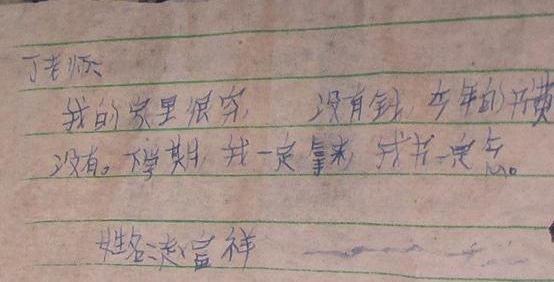 丁老师:
我的家里很穷, 没有钱, 今年的
没有。下学期, 我一定拿来, 我一定
姓名:赵富祥